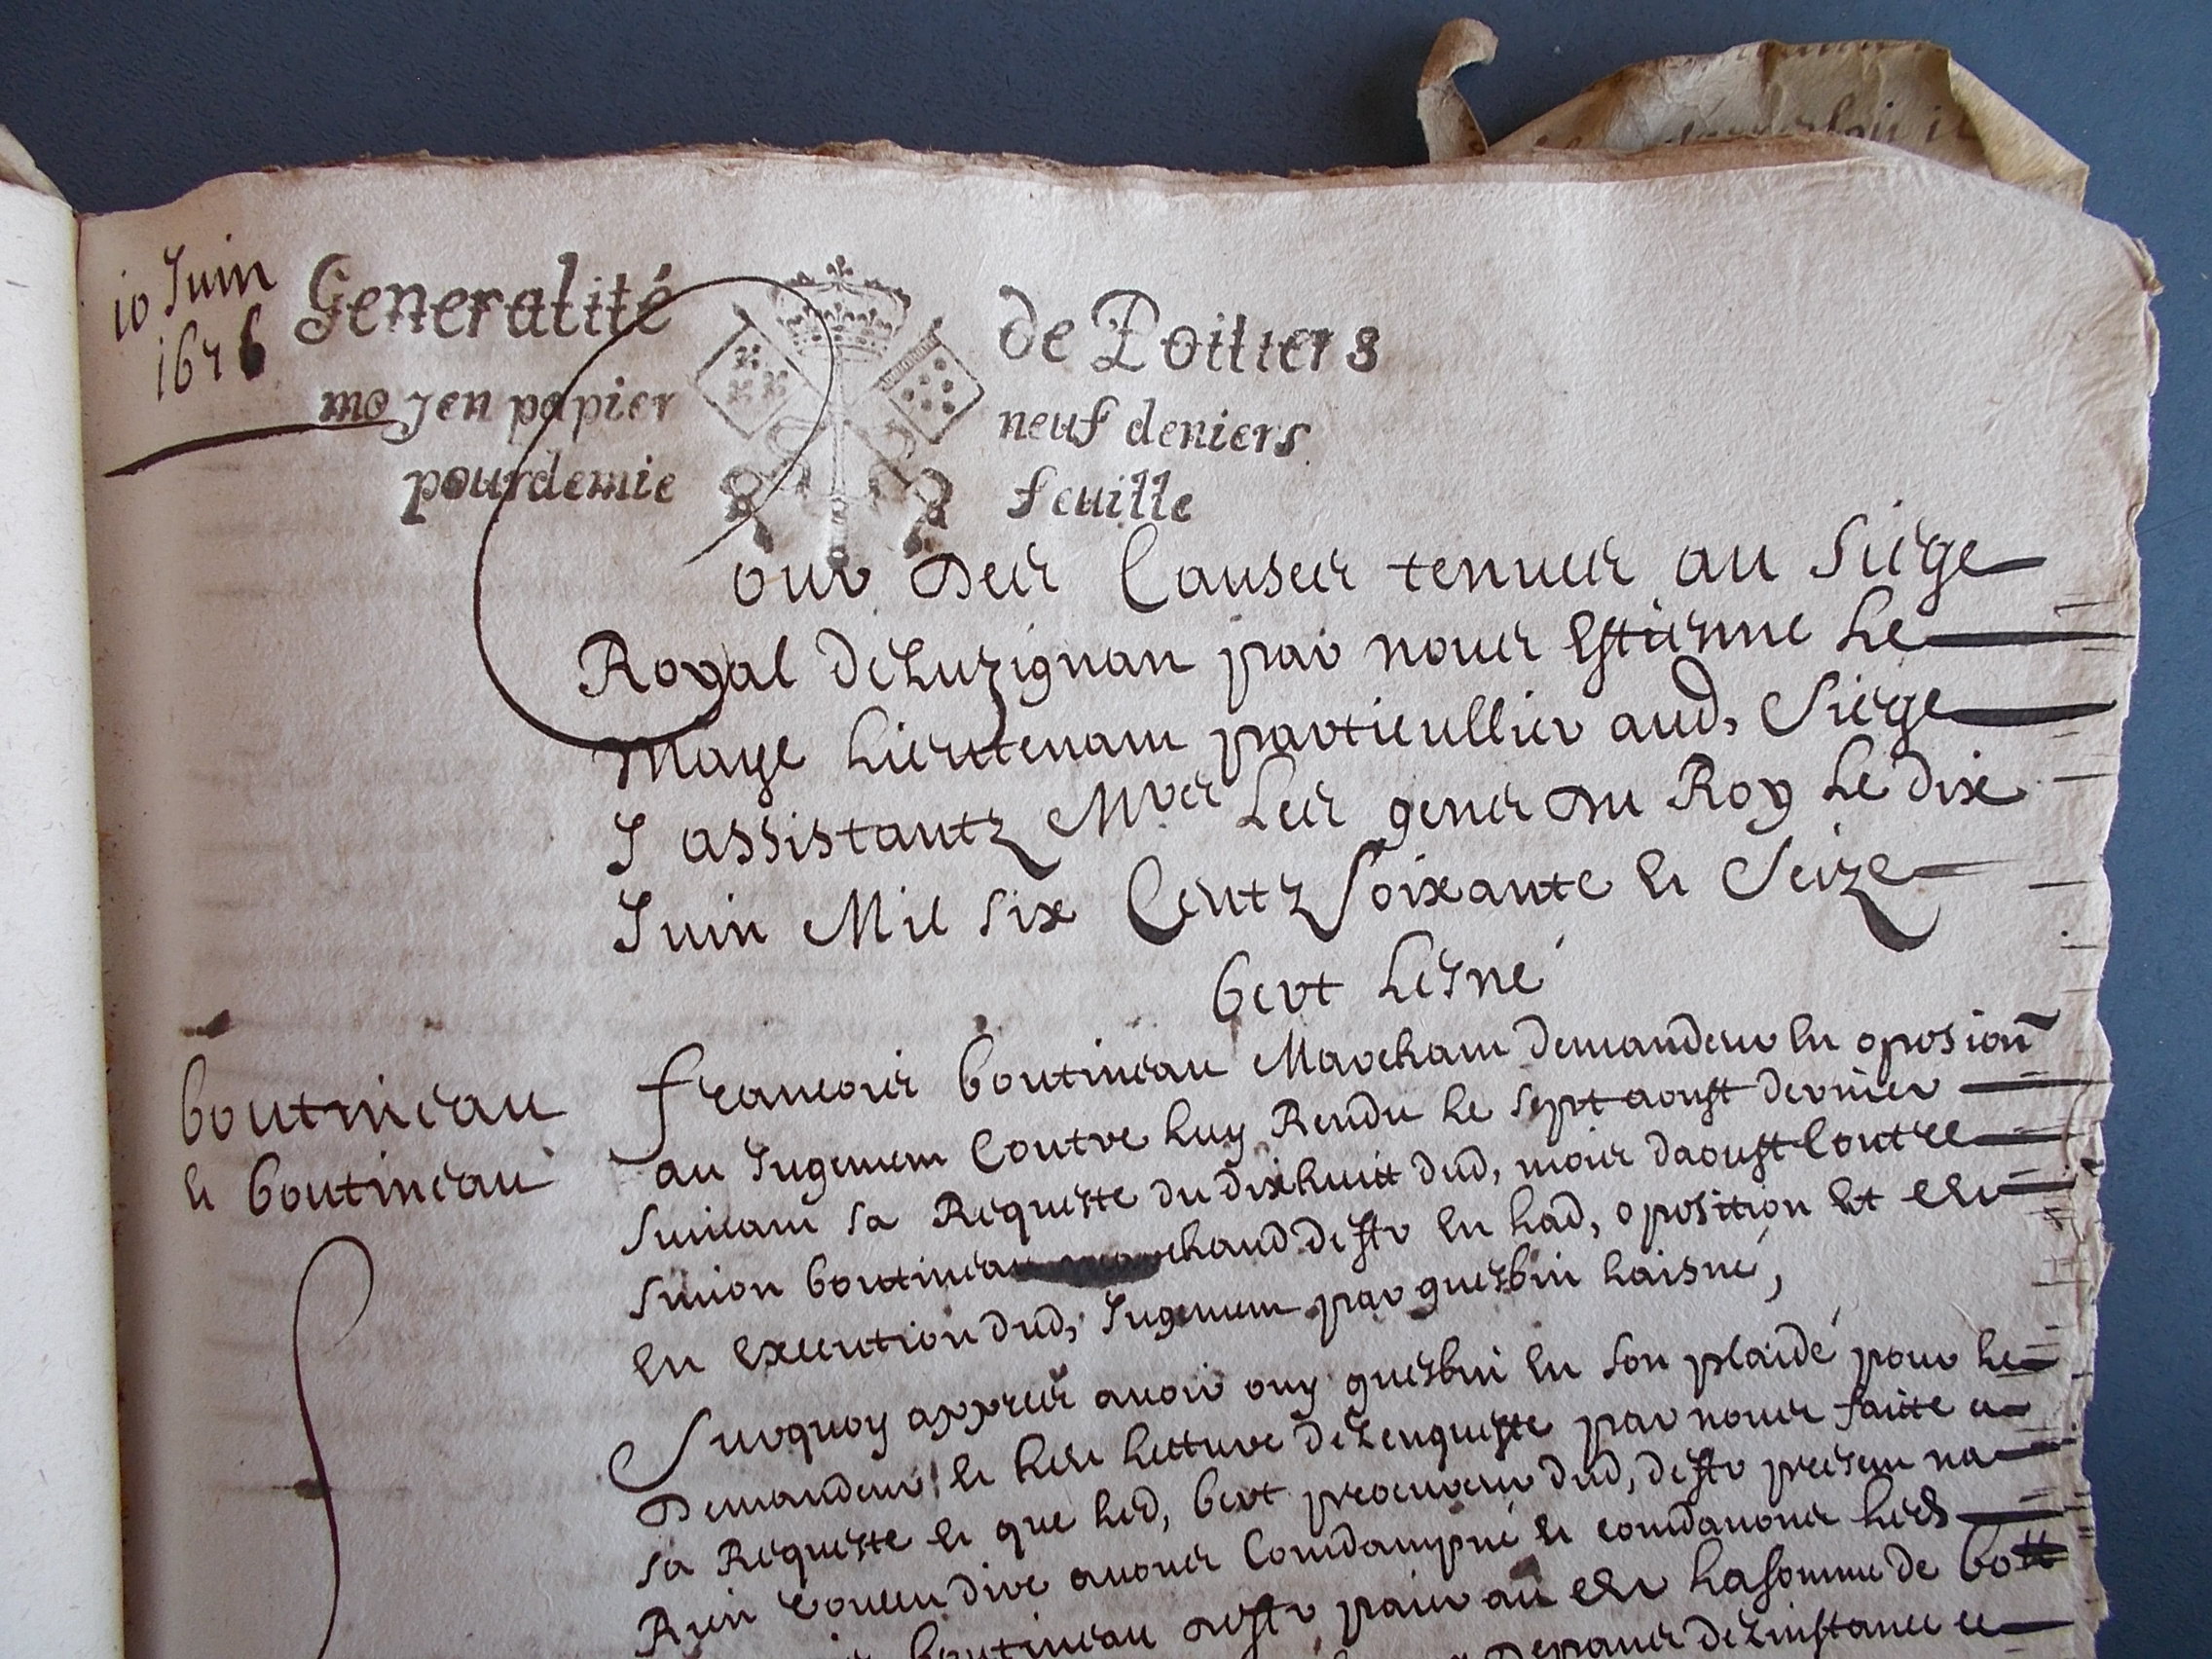 10 Juin
1676
Generalité de Poitiers
moyen papier neuf deniers
pour demie feuille
Cour des Causes tenues au Siege
Royal de Luzignan par nous Estienne Le
Maye Lieutenant particullier aud, Siege
Y assistantz Mrs Les gens du Roy Le dix
Juin Mil six Centz Soixante et Seize
bert Lesné
boutineau
et boutineau
francois boutineau Marchant demandeur en oposion
au Jugement Contre luy Rendu le sept aoust dernier
suivant sa Requeste du dixhuict dud, mois daoust Contre
simon boutineau marchand deffr en lad, oposition et
en execution dud, Jugement par guesbin laisné,
Surquoy appres avoir ouy guesbin en son plaidé pour le
Demandeur et lecture de Lenqueste par nous faitte a
sa Requeste et que led, bert procureur dud, deffr present na
Rien voullu dire avons Condampné et condanons
boutineau deffr paier au la somme de
depans de Linstance